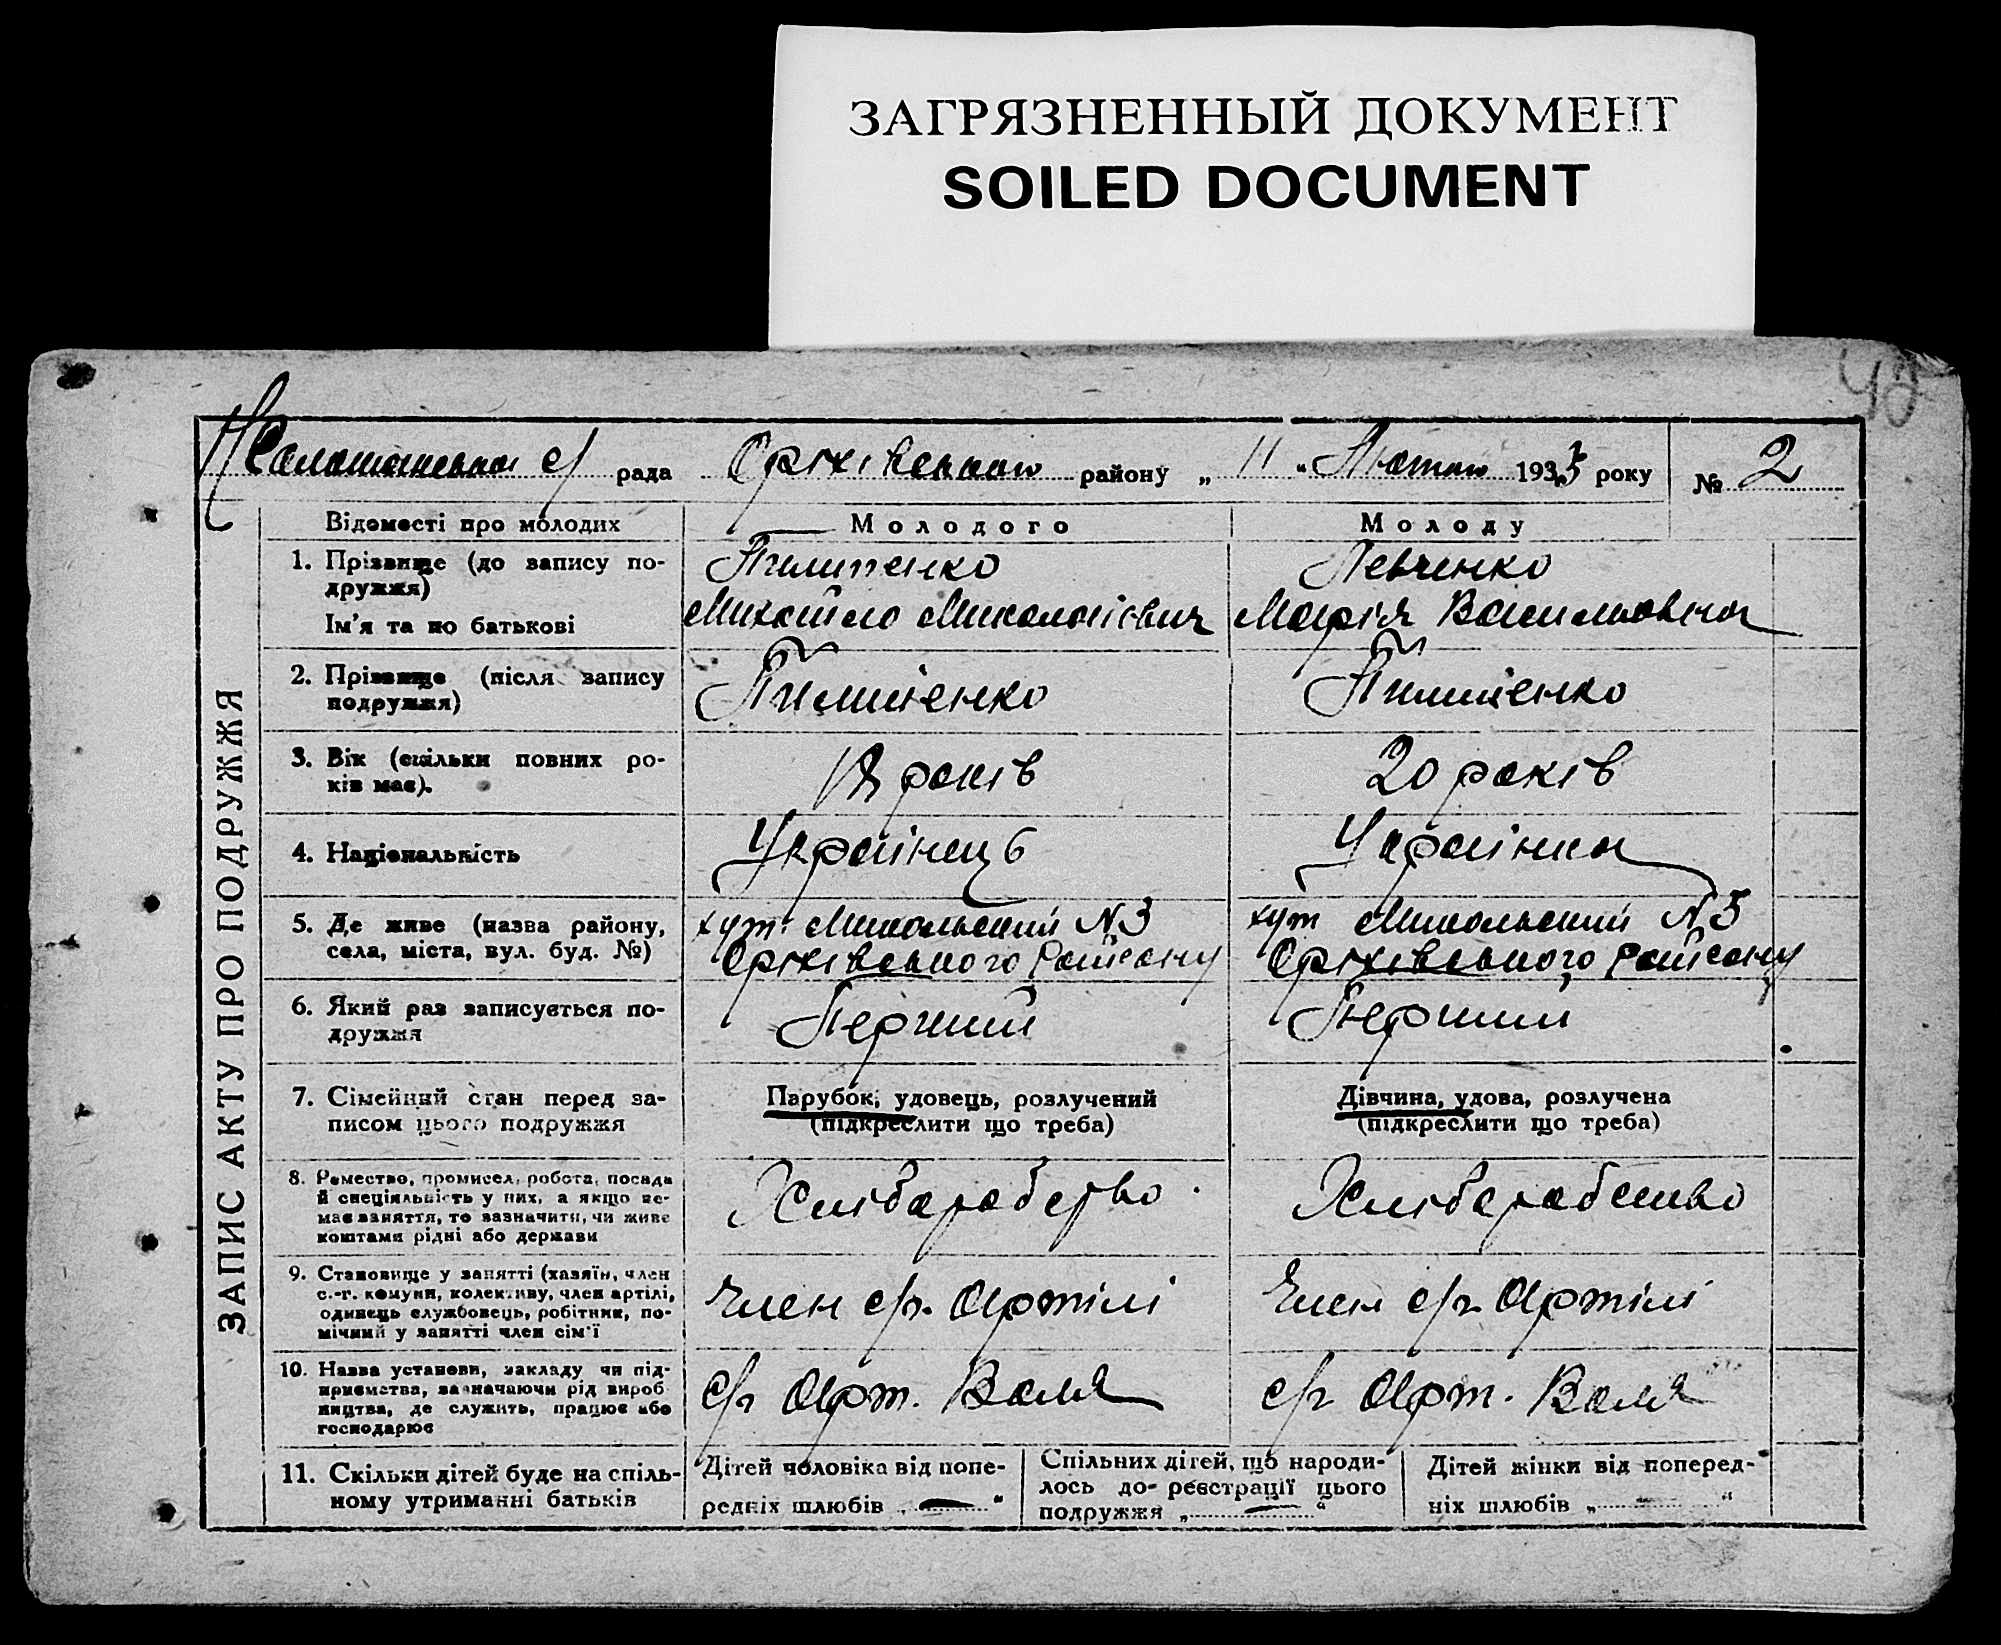 ЗАГРЯЗНЕННЫЙ ДОКУМЕНТ
SOILED DOCUMENT
42
с/ рада Оріхівського району „ 11 “ Лютого 1933 року № 2
ЗАПИС АКТУ ПРО ПОДРУЖЖЯ
Відомості про молодих
Молодого
Молоду
1. Прізвище (до запису по-
дружжя)
Ім'я та по батькові
Пилипенко
Михайло Миколаієвич
Левченко
Марія Василівна
2. Прізвище (після запису
подружжя)
Пилипенко
Пилипенко
3. Вік (скільки повних ро-
ків має).
років
20 років
4. Національність
Українець
Українка
5. Де живе (назва району,
села, міста, вул. буд. №)
хут. Микольский N 3
Оріхівського Району
хут Микольский N 3
Оріхівського Району
6. Який раз записується по-
дружжя
Перший
Перший
7. Сімейний стан перед за-
писом цього подружжя
Парубок, удовець, розлучений
(підкреслити що треба)
Дівчина, удова, розлучена
(підкреслити що треба)
8. Ремество, промисел, робота, посада
й спеціяльність у них, а якщо не-
має заняття, то зазначити, чи живе
коштами рідні або держави
Хліборобство
Хліборобство
9. Становище у занятті (хазяїн, член
с.-г. комуни, колективу, член артілі,
одинець службовець, робітник, по-
мічний у занятті член сім'ї
Член с/г. Артілі
Член с/г. Артілі
10. Назва установи, закладу чи під-
приємства, зазначаючи рід вироб
ництва, де служить, працює або
господарює
с/г Арт. Воля
с/г Арт. Воля
11. Скільки дітей буде на спіль-
ному утриманні батьків
Дітей чоловіка від попе-
редніх шлюбів „ — “
Спільних дітей, що народи-
лось до- реєстрації цього
подружжя „ — “
Дітей жінки від поперед-
ніх шлюбів „ — “